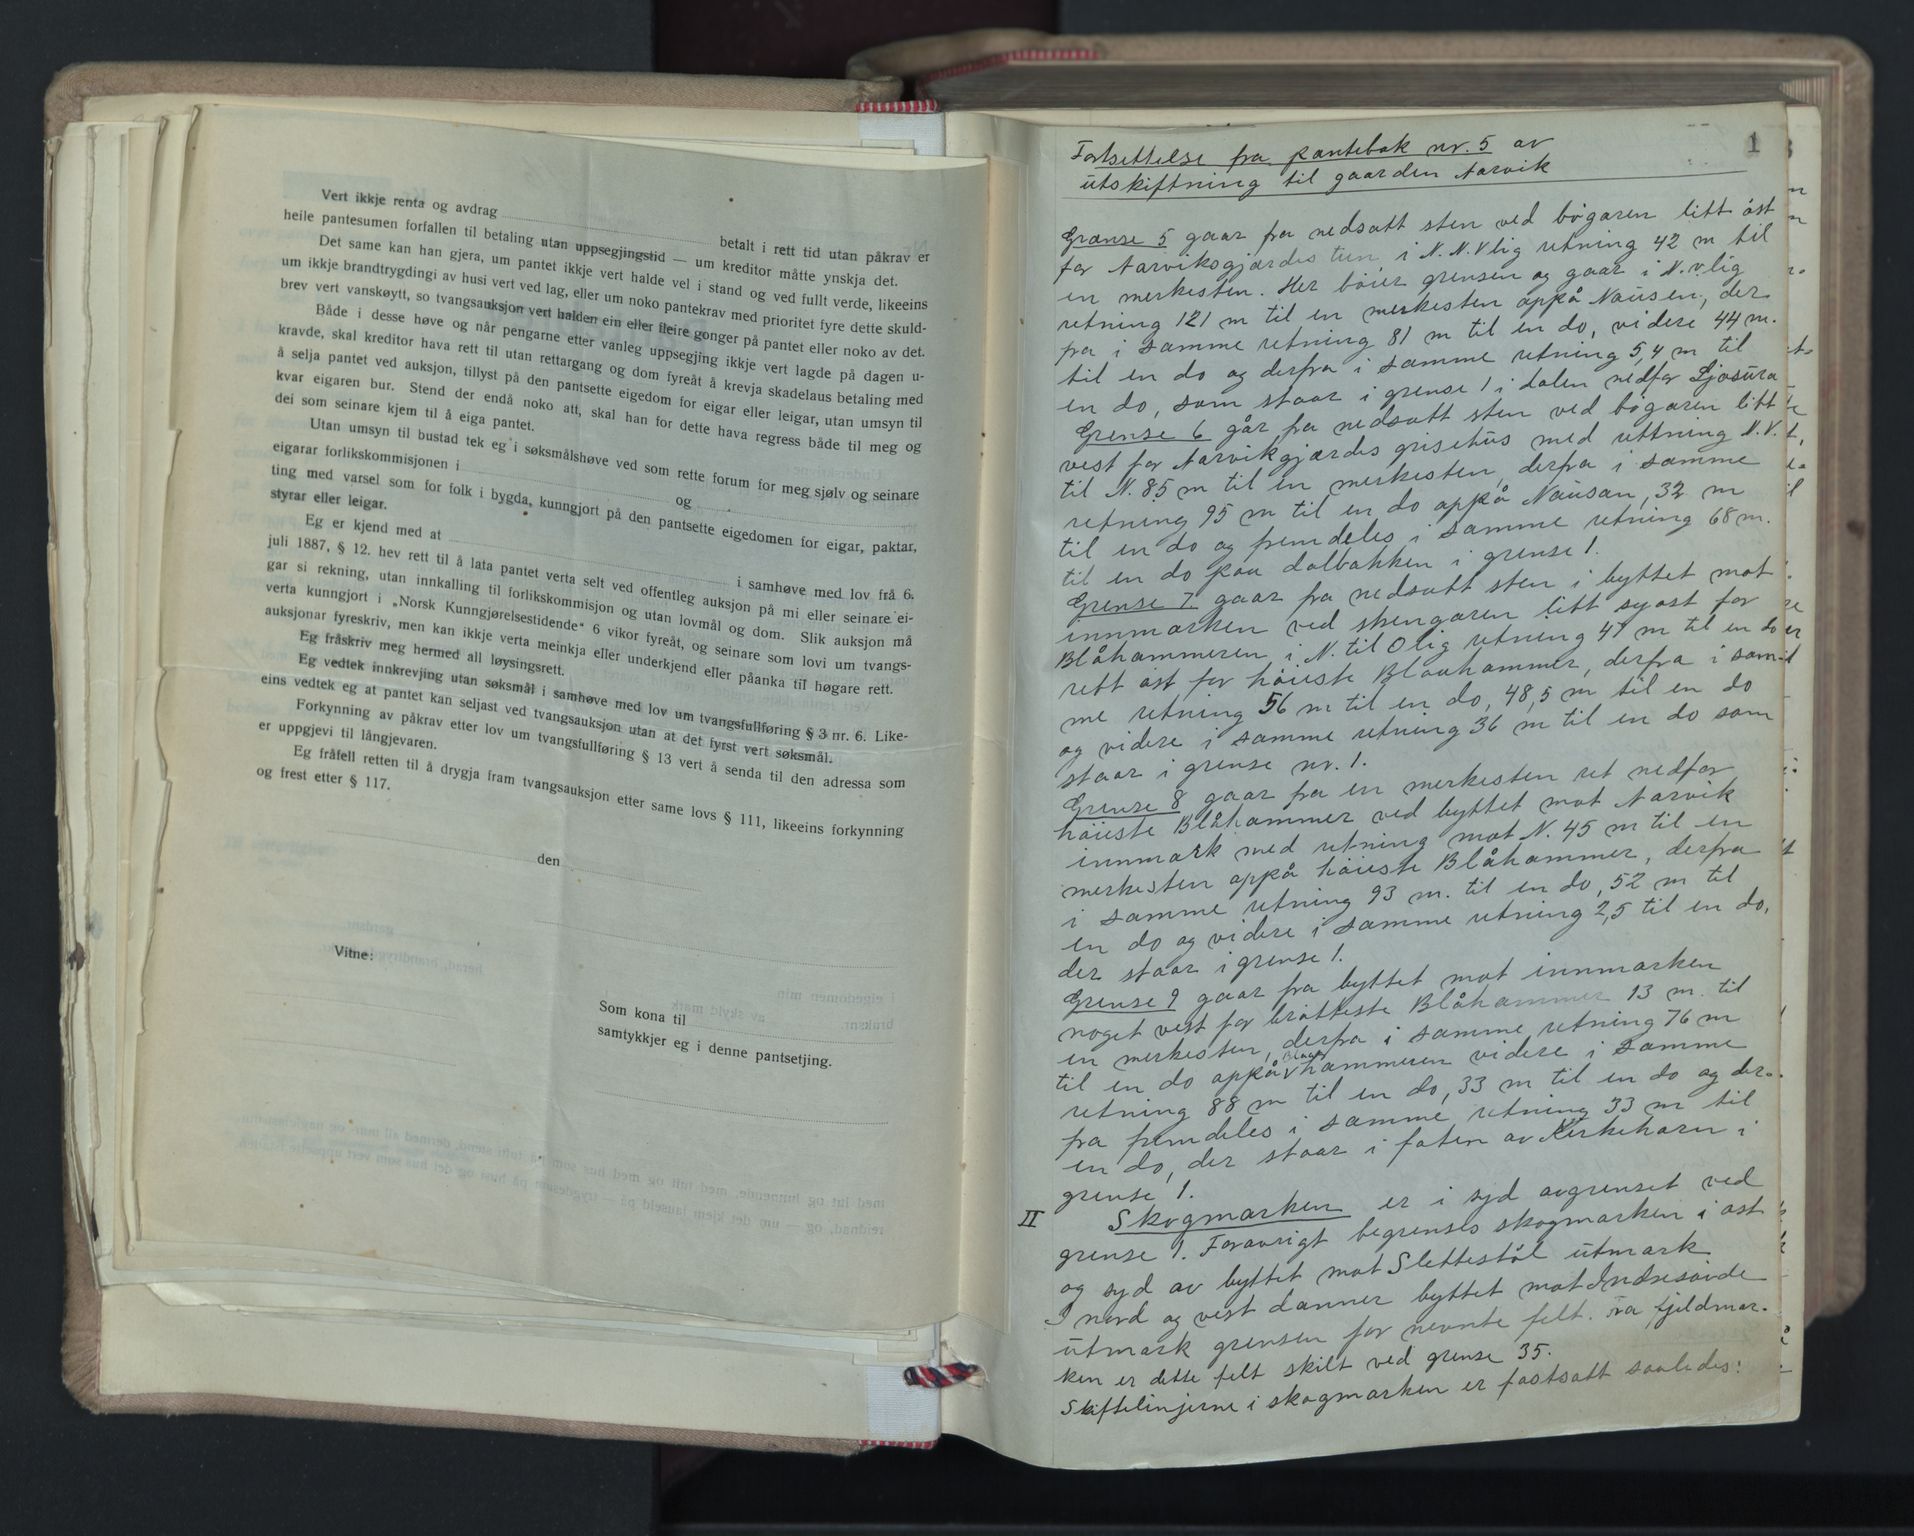 Vert ikkje renta og avdrag betalt i rett tid utan påkrav er
heile pantesumen forfallen til betaling utan uppsegjingstid — um kreditor måtte ynskja det.
Det same kan han gjera, um pantet ikkje vert halde vel i stand og ved fullt verde, likeeins
um ikkje brandtrygdingi av husi vert ved lag, eller um noko pantekrav med prioritet fyre dette skuld-
brev vert vanskøytt, so tvangsauksjon vert halden ein eller fleire gonger på pantet eller noko av det.
Både i desse høve og når pengarne etter vanleg uppsegjing ikkje vert lagde på dagen u-
kravde, skal kreditor hava rett til utan rettargang og dom fyreåt å krevja skadelaus betaling med
å selja pantet ved auksjon, tillyst på den pantsette eigedom for eigar eller leigar, utan umsyn til
kvar eigaren bur. Stend der endå noko att, skal han for dette hava regress både til meg og
dei som seinare kjem til å eiga pantet.
Utan umsyn til bustad tek eg i søksmålshøve ved som rette forum for meg sjølv og seinare
eigarar forlikskommisjonen i og
ting med varsel som for folk i bygda, kunngjort på den pantsette eigedomen for eigar, paktar,
styrar eller leigar.
Eg er kjend med at i samhøve med lov frå 6.
juli 1887, § 12. hev rett til å lata pantet verta selt ved offentleg auksjon på mi eller seinare ei-
gar si rekning, utan innkalling til forlikskommisjon og utan lovmål og dom. Slik auksjon må
verta kunngjort i „Norsk Kunngjørelsestidende“ 6 vikor fyreåt, og seinare som lovi um tvangs-
auksjonar fyreskriv, men kan ikkje verta meinkja eller underkjend eller påanka til høgare rett.
Eg fråskriv meg hermed all løysingsrett.
Eg vedtek innkrevjing utan søksmål i samhøve med lov um tvangsfullføring § 3 nr. 6. Like-
eins vedtek eg at pantet kan seljast ved tvangsauksjon utan at det fyrst vert søksmål.
Forkynning av påkrav etter lov um tvangsfullføring § 13 vert å senda til den adressa som
er uppgjevi til långjevaren.
Eg fråfell retten til å drygja fram tvangsauksjon etter same lovs § 111, likeeins forkynning
og frest etter § 117.
den
Vitne:
Som kona til
samtykkjer eg i denne pantsetjing.
1
Fortsettelse fra pantebok nr. 5 av
utskiftning til gaarden Aarvik
Grænse 5 gaar fra nedsatt sten ved bøgaren litt øst
for Aarviksgjærdes tun i N.N.Vlig retning 42 m til
en merkesten. Her bøier grensen og gaar i N.vlig
retning 121 m til en merkesten oppå Nausen, der
fra i samme retning 81 m til en do, videre 44 m.
til en do og derfra i samme retning 5,4 m til
en do, som staar i grense 1 i dalen nedfor Ljosura
Grense 6 går fra nedsatt sten ved bøgaren litt
vest for Aarvikgjærdes grisehus med rettning N.V.
til N. 85 m til en merkesten, derfra i samme
retning 95 m til en do oppå Nausan, 32 m
til en do og fremdeles i samme retning 68 m.
til en do paa dalbakken i grense 1.
Grense 7 gaar fra nedsatt sten i byttet mot
innmarken ved stengaren litt syost for
Blåhammeren i N. til Olig retning 47 m til en do
rett øst for høieste Blaahammer, derfra i sam-
me retning 56 m til en do, 48,5 m til en do
og videre i samme retning 36 m til en do som
staar i grense nr. 1.
Grense 8 gaar fra en merkesten ret nedfor
høieste Blåhammer ved byttet mot Aarvik
innmark med retning mot N. 45 m til en
merkesten oppå høieste Blåhammer, derfra
i samme retning 93 m. til en do, 52 m til
en do og videre i samme retning 2,5 til en do,
der staar i grense 1.
Grense 9 gaar fra byttet mot innmarken
noget vest for bratteste Blåhammer 13 m. til
en merkesten, derfra i samme retning 76 m
til en do oppå Blaahammeren videre i samme
retning 88 m til en do, 33 m til en do og der-
fra fremdeles i samme retning 33 m til
en do, der staar i foten av Kirkehorn i
grense 1.
II Skogmarken er i syd avgrenset ved
grense 1. Forøvrigt begrenses skogmarken i øst
og syd av byttet mot Slettestøl utmark
I nord og vest danner byttet mot Indresøvde
utmark grensen for nevnte felt. Fra fjeldmar-
ken er dette felt skilt ved grense 35.
Skiftelinjerne i skogmarken er fastsatt saaledes: